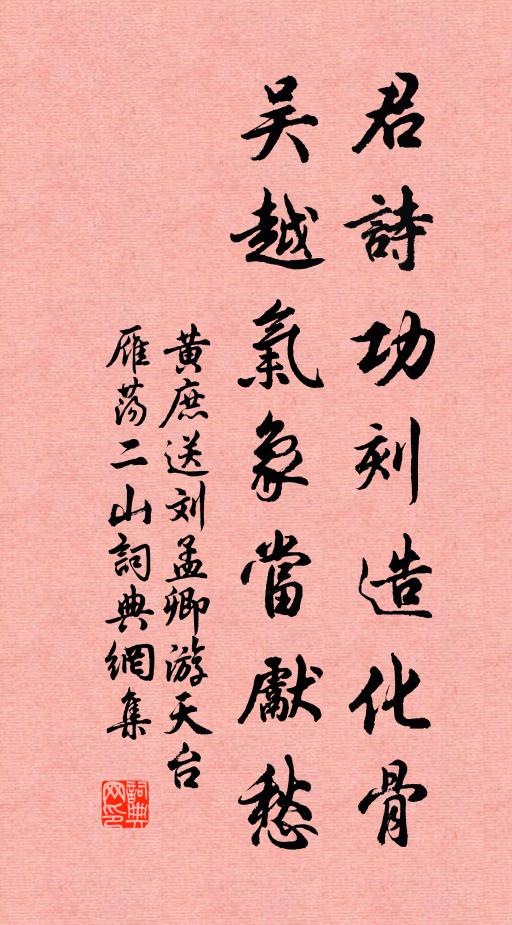 君詩功刻造化骨
吴越氣象當獻愁
黄庶送刘孟卿游天台
雁荡二山詞典網集
詞典网印